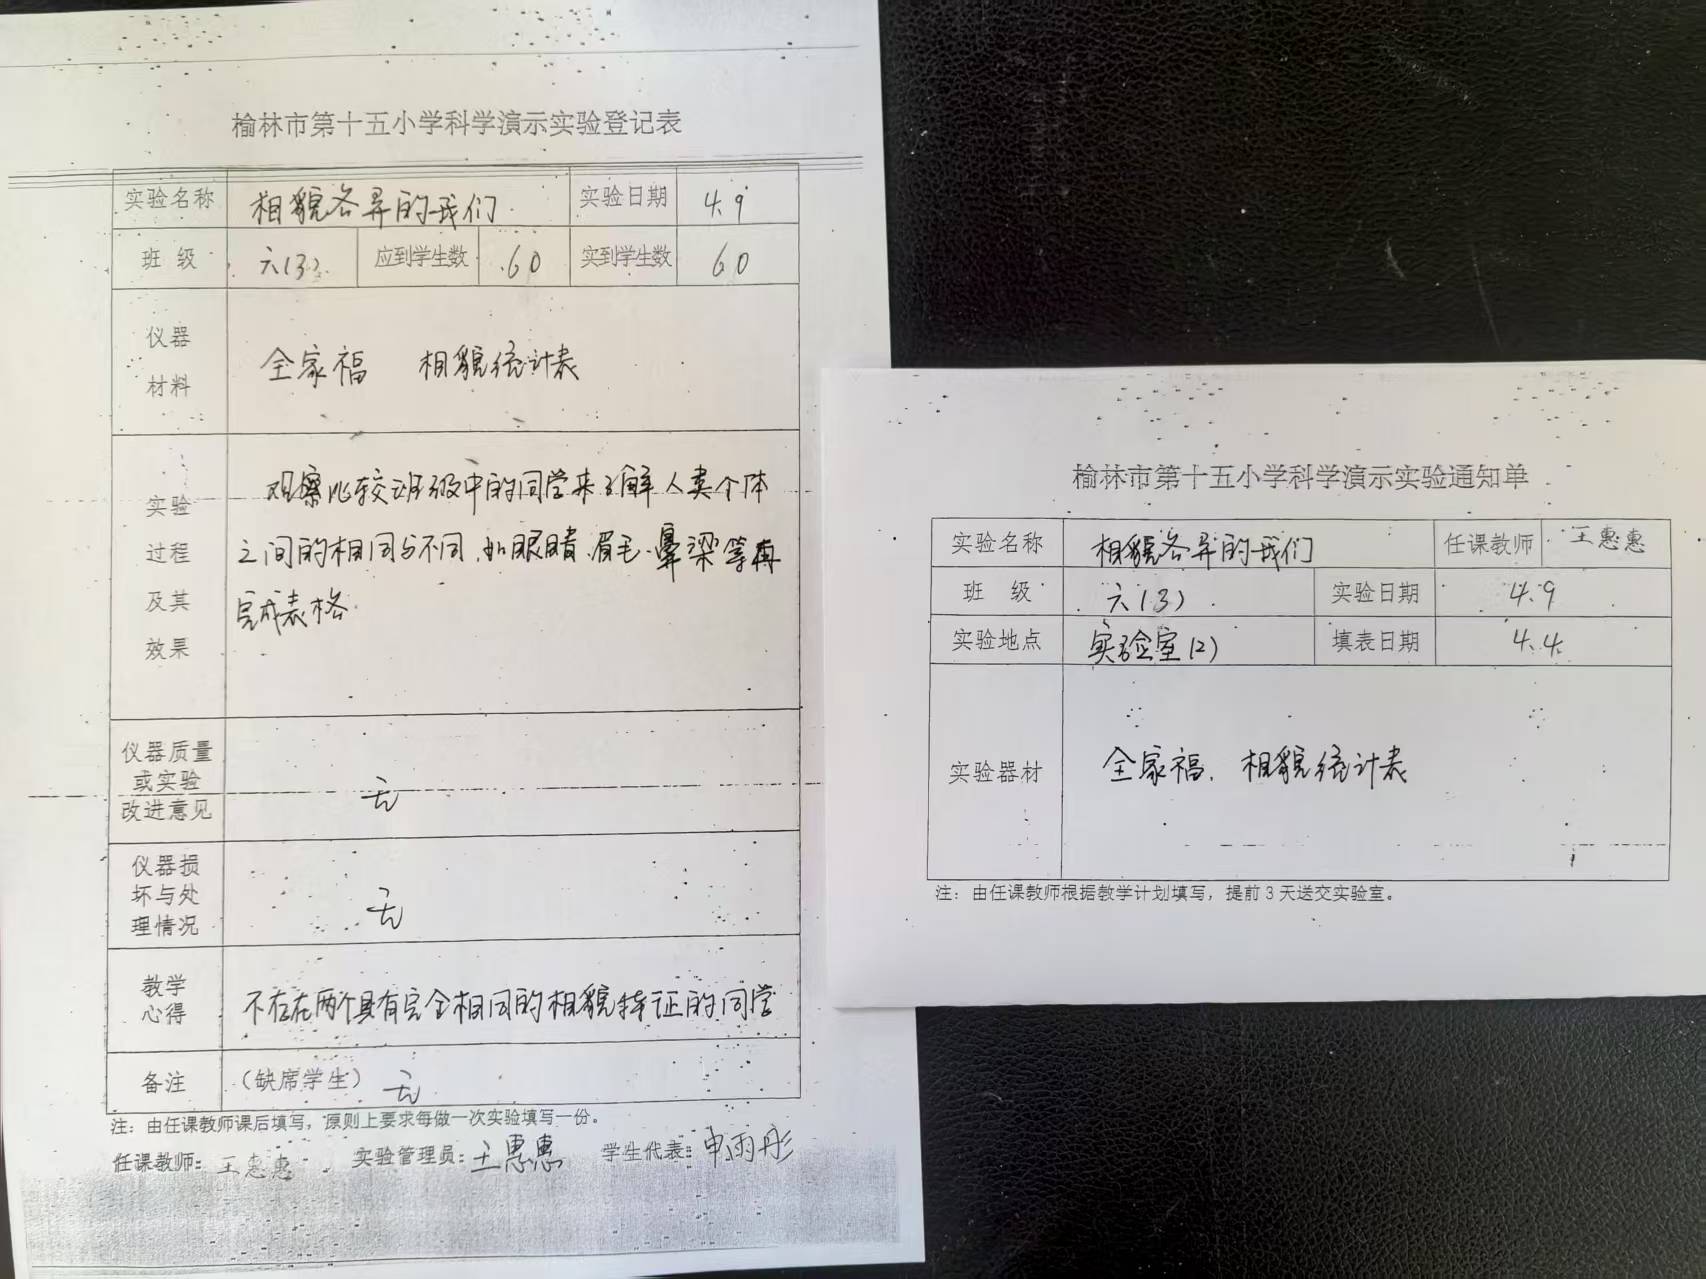 榆林市第十五小学科学演示实验登记表
实验名称 相貌各异的我们 实验日期 4.9
班 级 六(3) 应到学生数 60 实到学生数 60
仪器
材料
全家福 相貌统计表
实验
过程
及其
效果
观察比较班级中的同学来了解人类个体
之间的相同与不同,如眼睛、眉毛、鼻梁等再
完成表格
仪器质量
或实验
改进意见
无
仪器损
坏与处
理情况
无
教学
心得
不存在两个具有完全相同的相貌特证的同学
备注 (缺席学生) 无
注:由任课教师课后填写,原则上要求每做一次实验填写一份。
任课教师:王惠惠 实验管理员:王惠惠 学生代表:申雨彤
榆林市第十五小学科学演示实验通知单
实验名称 相貌各异的我们 任课教师 王惠惠
班 级 六(3) 实验日期 4.9
实验地点 实验室(2) 填表日期 4.4
实验器材 全家福、相貌统计表
注:由任课教师根据教学计划填写,提前3天送交实验室。